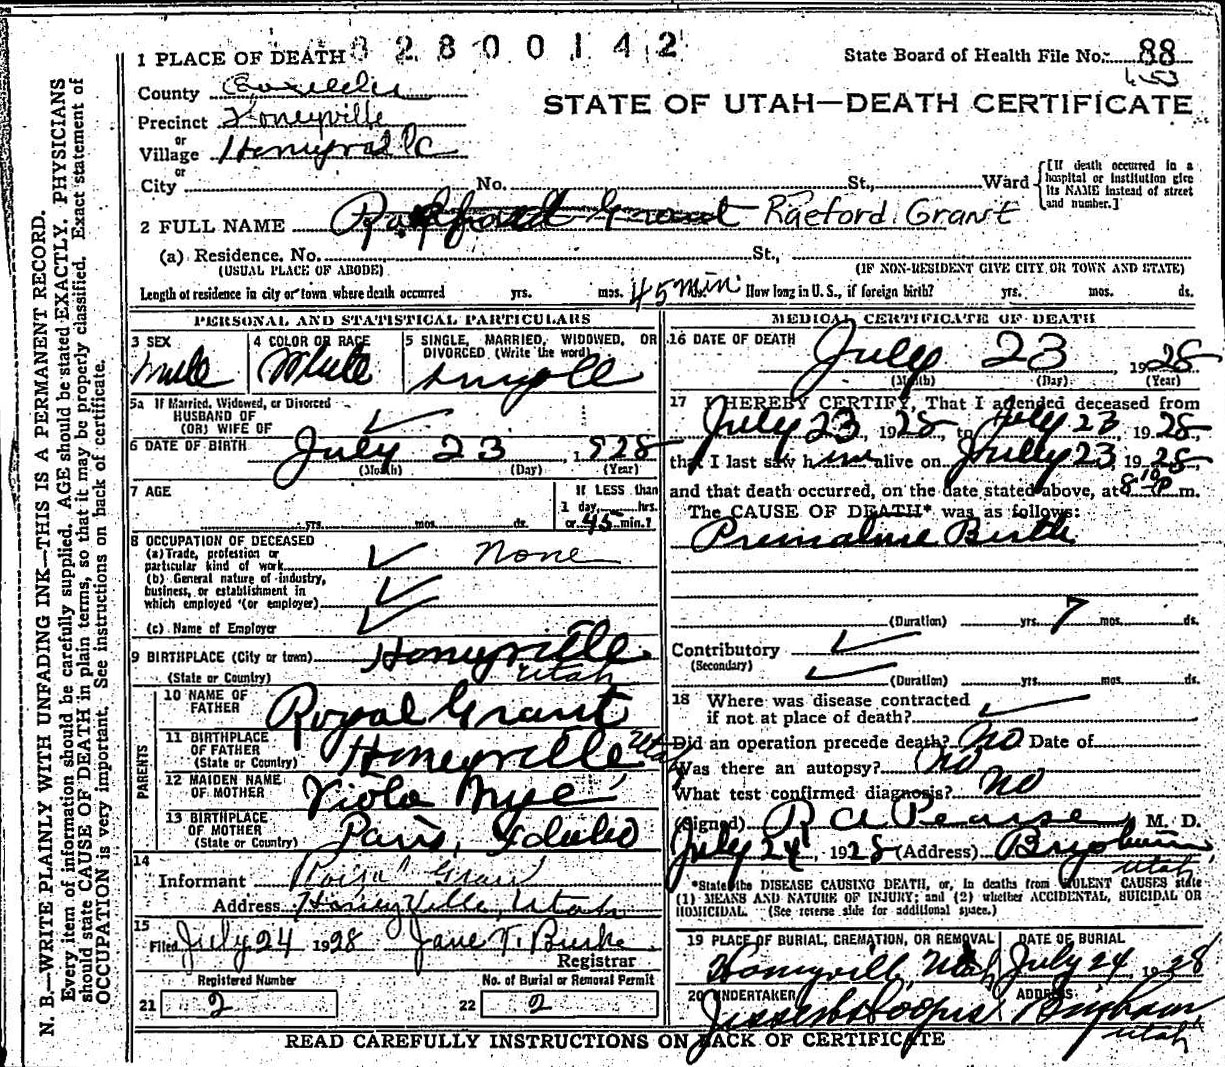 N. B.—WRITE PLAINLY WITH UNFADING INK—THIS IS A PERMANENT RECORD.
Every item of information should be carefully supplied. AGE should be stated EXACTLY. PHYSICIANS
should state CAUSE OF DEATH in plain terms, so that it may be properly classified. Exact statement of
OCCUPATION is very important. See instructions on back of certificate.
1 PLACE OF DEATH 82800142
State Board of Health File No. 88
County
STATE OF UTAH—DEATH CERTIFICATE
Precinct Honeyville
or
Village
or
City No. St., Ward
[If death occurred in a
hospital or institution give
its NAME instead of street
and number.]
2 FULL NAME Grant Raeford Grant
(a) Residence, No. St.,
(USUAL PLACE OF ABODE) (IF NON-RESIDENT GIVE CITY OR TOWN AND STATE)
Length of residence in city or town where death occurred yrs. mos. 45 min. How long in U. S., if foreign birth? yrs. mos. ds.
PERSONAL AND STATISTICAL PARTICULARS
3 SEX male
4 COLOR OR RACE White
5 SINGLE, MARRIED, WIDOWED, OR
DIVORCED (Write the word) single
5a If Married, Widowed, or Divorced
HUSBAND OF
(OR) WIFE OF
6 DATE OF BIRTH July 23, 1928
(Month) (Day) (Year)
7 AGE yrs. mos. ds.
If LESS than
1 day, hrs.
or 45 min.?
8 OCCUPATION OF DECEASED
(a) Trade, profession or
particular kind of work None
(b) General nature of industry,
business, or establishment in
which employed (or employer)
(c) Name of Employer
9 BIRTHPLACE (City or town) Honeyville
(State or Country) Utah
PARENTS
10 NAME OF
FATHER Royal Grant
11 BIRTHPLACE
OF FATHER
(State or Country) Honeyville Utah
12 MAIDEN NAME
OF MOTHER Viola Nye
13 BIRTHPLACE
OF MOTHER
(State or Country) Paris, Idaho
14
Informant
Address Honeyville, Utah
15
Filed July 24 1928 Jane T. Burke
Registrar
Registered Number
21 2
No. of Burial or Removal Permit
22 2
MEDICAL CERTIFICATE OF DEATH
16 DATE OF DEATH July 23, 1928
(Month) (Day) (Year)
17 I HEREBY CERTIFY, That I attended deceased from
July 23 1928, to July 23 1928,
that I last saw him alive on July 23, 1928
and that death occurred, on the date stated above, at 8 10 p m.
The CAUSE OF DEATH* was as follows:
Premature Birth
(Duration) yrs. 7 mos. ds.
Contributory
(Secondary)
(Duration) yrs. mos. ds.
18 Where was disease contracted
if not at place of death?
Did an operation precede death? No Date of
Was there an autopsy? No
What test confirmed diagnosis? No
(Signed) R A Pearse, M. D.
July 24, 1928 (Address) Brigham, Utah
*State the DISEASE CAUSING DEATH, or, in deaths from VIOLENT CAUSES state
(1) MEANS AND NATURE OF INJURY; and (2) whether ACCIDENTAL, SUICIDAL OR
HOMICIDAL. (See reverse side for additional space.)
19 PLACE OF BURIAL, CREMATION, OR REMOVAL DATE OF BURIAL
Honeyville, Utah July 24, 1928
20 UNDERTAKER ADDRESS
Brigham, Utah
READ CAREFULLY INSTRUCTIONS ON BACK OF CERTIFICATE